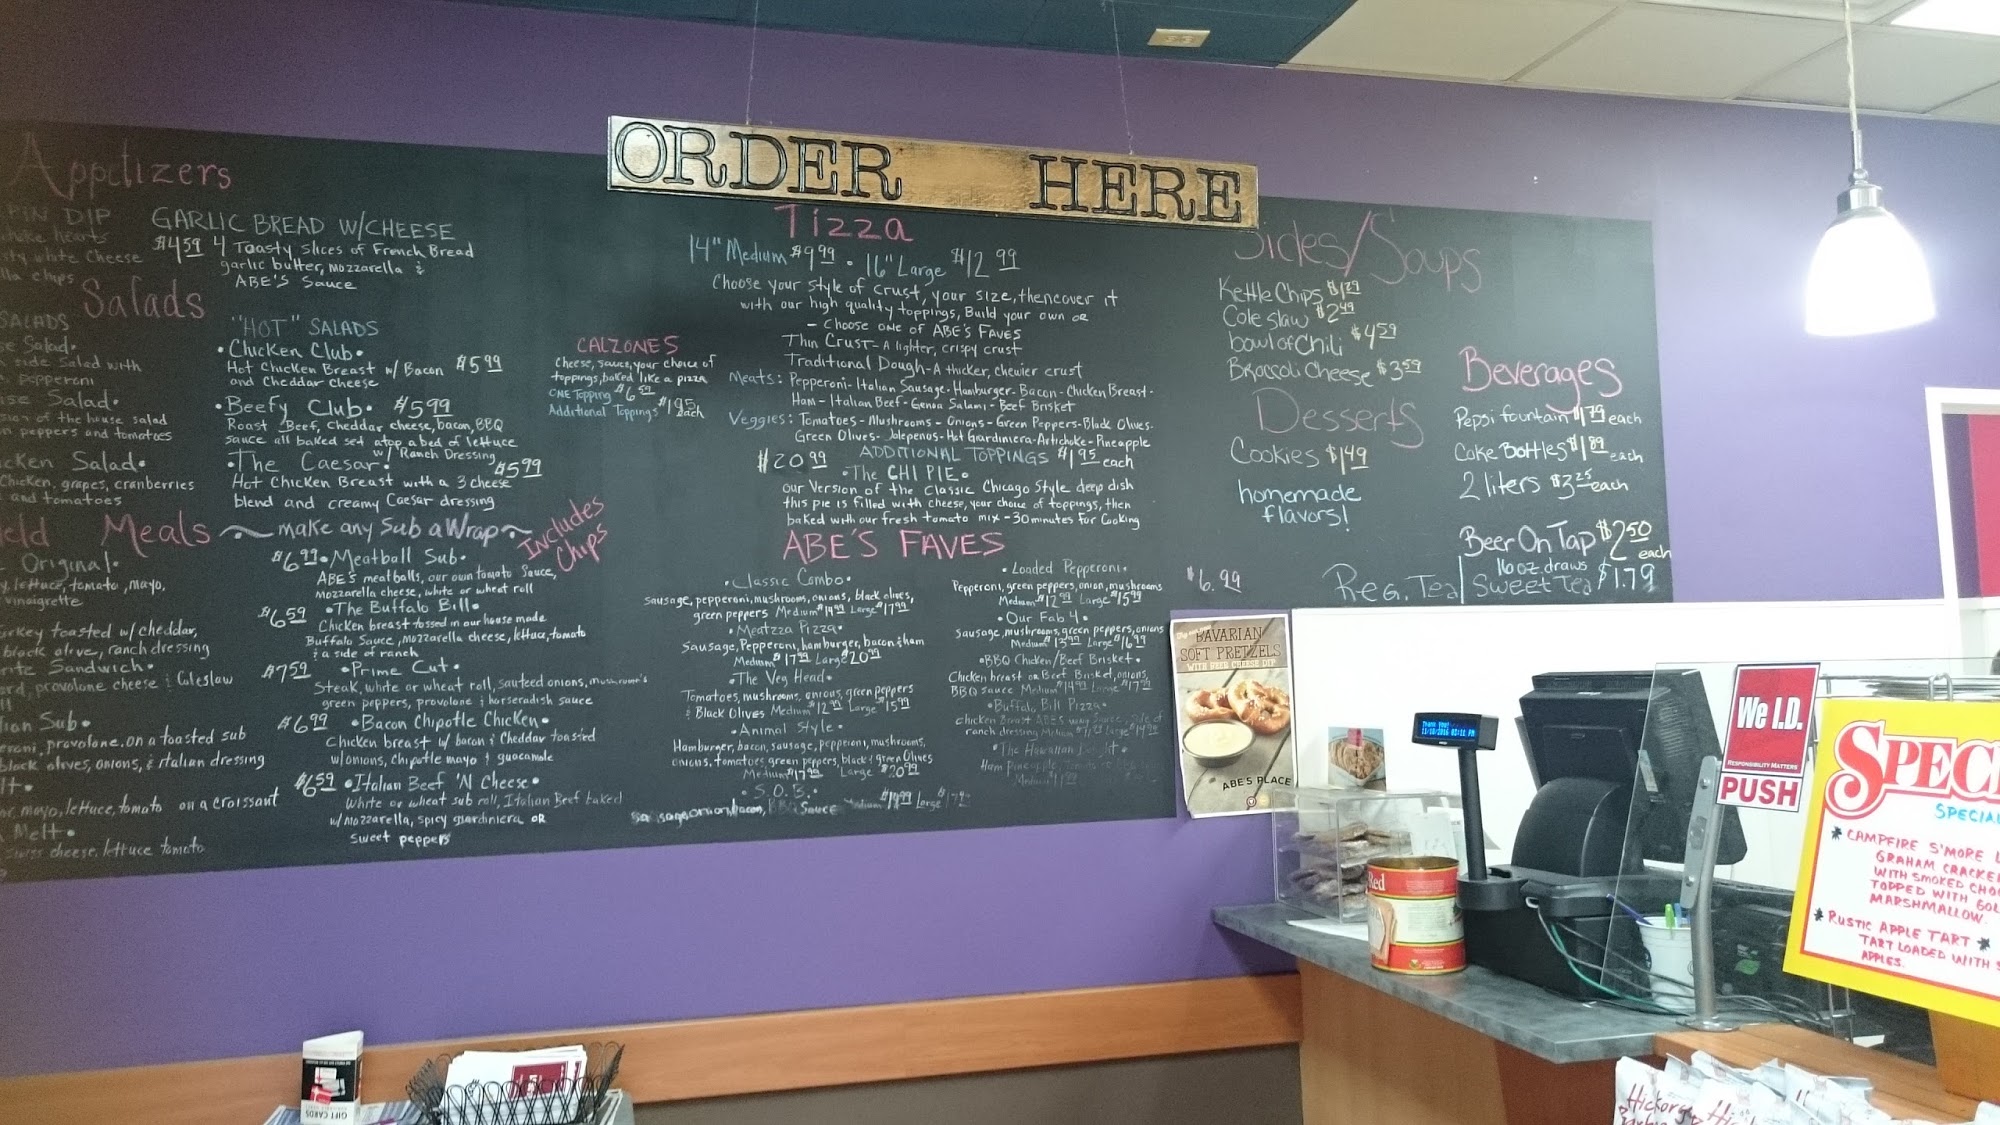 ORDER HERE
Appetizers
PIN DIP
hearts
white cheese
chips
GARLIC BREAD W/CHEESE
$4.59 4 Toasty Slices of French Bread
garlic butter, mozzarella &
ABE'S Sauce
Salads
SALADS
Salad•
side salad with
pepperoni
Salad•
of the house salad
peppers and tomatoes
Salad•
Chicken, grapes, cranberries
and tomatoes
"HOT" SALADS
• Chicken Club •
Hot Chicken Breast w/ Bacon $5.99
and Cheddar Cheese
• Beefy Club • $5.99
Roast Beef, Cheddar cheese, bacon, BBQ
sauce all baked set atop a bed of lettuce
w/ Ranch Dressing
• The Caesar • $5.99
Hot Chicken Breast with a 3 cheese
blend and creamy Caesar dressing
Meals ~ make any Sub a Wrap ~
Includes Chips
Original•
lettuce, tomato, mayo,
vinaigrette
toasted w/ cheddar,
black olive, ranch dressing
Sandwich•
provolone cheese & Coleslaw
Sub•
provolone. on a toasted sub
black olives, onions, & italian dressing
mayo, lettuce, tomato on a croissant
Melt•
swiss cheese, lettuce tomato
$6.99 • Meatball Sub •
ABE's meatballs, our own tomato Sauce,
mozzarella cheese, white or wheat roll
$6.59 • The Buffalo Bill •
Chicken breast tossed in our house made
Buffalo Sauce, mozzarella cheese, lettuce, tomato
& a side of ranch
$7.59 • Prime Cut •
Steak, white or wheat roll, sauteed onions, mushrooms
green peppers, provolone & horseradish sauce
$6.99 • Bacon Chipotle Chicken •
Chicken breast w/ bacon & Cheddar toasted
w/onions, chipotle mayo & guacamole
$6.59 • Italian Beef 'N Cheese •
White or wheat sub roll, Italian Beef baked
w/ mozzarella, spicy giardiniera OR
sweet peppers
CALZONES
Cheese, sauce, your choice of
toppings, baked like a pizza
ONE Topping $6.59
Additional Toppings $1.95 each
Tizza
14" Medium $9.99 • 16" Large $12.99
Choose your style of crust, your size, then cover it
with our high quality toppings, Build your own or
- Choose one of ABE's FAVES
Thin Crust - A lighter, crispy crust
Traditional Dough - A thicker, chewier crust
Meats: Pepperoni - Italian Sausage - Hamburger - Bacon - Chicken Breast -
Ham - Italian Beef - Genoa Salami - Beef Brisket
Veggies: Tomatoes - Mushrooms - Onions - Green Peppers - Black Olives -
Green Olives - Jalepenos - Hot Giardiniera - Artichoke - Pineapple
ADDITIONAL TOPPINGS $1.95 each
$20.99 • The CHI PIE •
our Version of the Classic Chicago Style deep dish
this pie is filled with cheese, your choice of toppings, then
baked with our fresh tomato mix - 30 minutes For Cooking
ABE'S FAVES
• Classic Combo •
sausage, pepperoni, mushrooms, onions, black olives,
green peppers Medium $14.99 Large $17.99
• Meatzza Pizza •
Sausage, Pepperoni, hamburger, bacon & ham
Medium $17.99 Large $20.99
• The Veg Head •
Tomatoes, mushrooms, onions, green peppers
& Black Olives Medium $12.99 Large $15.99
• Animal Style •
Hamburger, bacon, sausage, pepperoni, mushrooms,
onions, tomatoes, green peppers, black & green Olives
Medium $17.99 Large $20.99
• S.O.B. •
sausage, onion, bacon, BBQ Sauce Medium $14.99 Large
• Loaded Pepperoni •
Pepperoni, green peppers, onion, mushrooms
Medium $12.99 Large $15.99
• Our Fab 4 •
Sausage, mushrooms, green peppers, onions
Medium $13.99 Large $16.99
• BBQ Chicken/Beef Brisket •
Chicken breast or Beef Brisket, onions,
BBQ sauce Medium $14.99 Large $17.99
• Buffalo Bill Pizza •
Chicken Breast ABE's wing Sauce, side of
ranch dressing Medium Large $14.99
• The Hawaiian Delight •
Ham Pineapple,
Medium
$6.99
Sides/Soups
Kettle Chips $1.29
Cole slaw $2.49
bowl of Chili $4.59
Broccoli Cheese $3.59
Desserts
Cookies $1.49
homemade
flavors!
Beverages
Pepsi fountain $1.79 each
Coke Bottles $1.89 each
2 liters $3.25 each
Beer On Tap $2.50 each
16 oz. draws
Reg. Tea | Sweet Tea $1.79
BAVARIAN
SOFT PRETZELS
WITH BEER CHEESE DIP
ABE'S PLACE
Thank You!
We I.D.
RESPONSIBILITY MATTERS
PUSH
SPEC
SPECIA
* CAMPFIRE S'MORE
GRAHAM CRACKE
WITH SMOKED CHO
TOPPED WITH GOL
MARSHMALLOW.
* RUSTIC APPLE TART *
TART LOADED WITH
APPLES.
Red
GIFT CARDS
Hickory